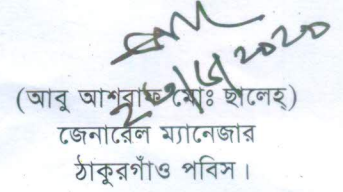 ২৭/৭/2020
(আবু আশরাফ মোঃ ছালেহ্)
জেনারেল ম্যানেজার
ঠাকুরগাঁও পবিস।